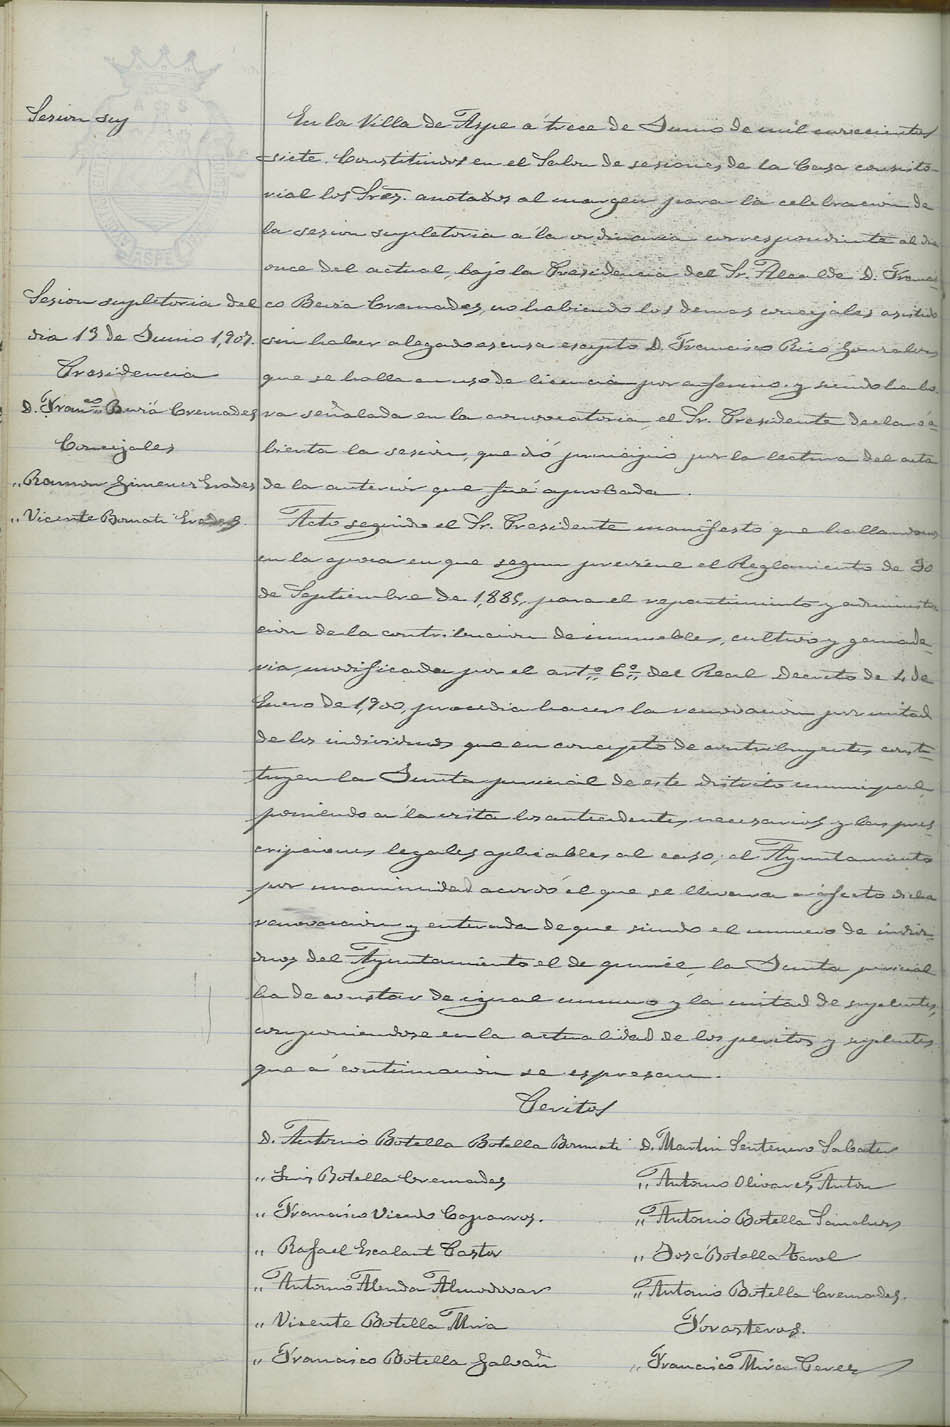 Sesion sup
Sesion supletoria del
dia 13 de Junio 1,907.
Presidencia
D. Franco Berná Cremades
Concejales
„ Ramon Gimenez Erades
„ Vicente Bernati Erades
En la Villa de Aspe á trece de Junio de mil novecientos
siete. Constituidos en el Salon de sesiones de la Casa consisto-
rial los Sres. anotados al margen para la celebracion de
la sesion supletoria a la ordinaria correspondiente al dia
once del actual, bajo la Presidencia del Sr. Alcalde D. Francis-
co Berná Cremades, no habiendo los demas concejales asistido
sin haber alegado escusa escepto D. Francisco Rico Gonzalvez
que se halla en uso de licencia por enfermo y siendo la ho-
ra señalada en la convocatoria, el Sr. Presidente declaró a-
bierta la sesion, que dió principio por la lectura del acta
de la anterior que fué aprobada.
Acto seguido el Sr. Presidente manifestó que hallandonos
en la epoca en que segun previene el Reglamento de 30
de Septiembre de 1,885, para el repartimiento y administra
cion de la contribucion de inmuebles, cultivo y ganade-
ria, modificada por el arto. 6º del Real Decreto de 4 de
Enero de 1,900, procedia hacer la renovacion por mitad
de los individuos que en concepto de contribuyentes consti-
tuyen la Junta pericial de este distrito municipal,
poniendo á la vista los antecedentes necesarios y las pres-
cripciones legales aplicables al caso; el Ayuntamiento
por unanimidad acordó el que se llevara a efecto dicha
renovacion y enterada de que siendo el numero de indivi-
duos del Ayuntamiento el de quince, la Junta pericial
ha de constar de igual numero y la mitad de suplentes,
componiendose en la actualidad de los peritos y suplentes
que á continuacion se espresan.
Peritos
D. Antonio Botella Botella Bernati D. Martin Sentenero Sabater
„ Luis Botella Cremades „ Antonio Olivares Anton
„ Francisco Vicedo Caparros. „ Antonio Botella Sanchez
„ Rafael Escalant Pastor „ José Botella Terol
„ Antonio Alenda Almodovar „ Antonio Botella Cremades.
„ Vicente Botella Mira Forasteros.
„ Francisco Botella Galvañ „ Francisco Mira Perez